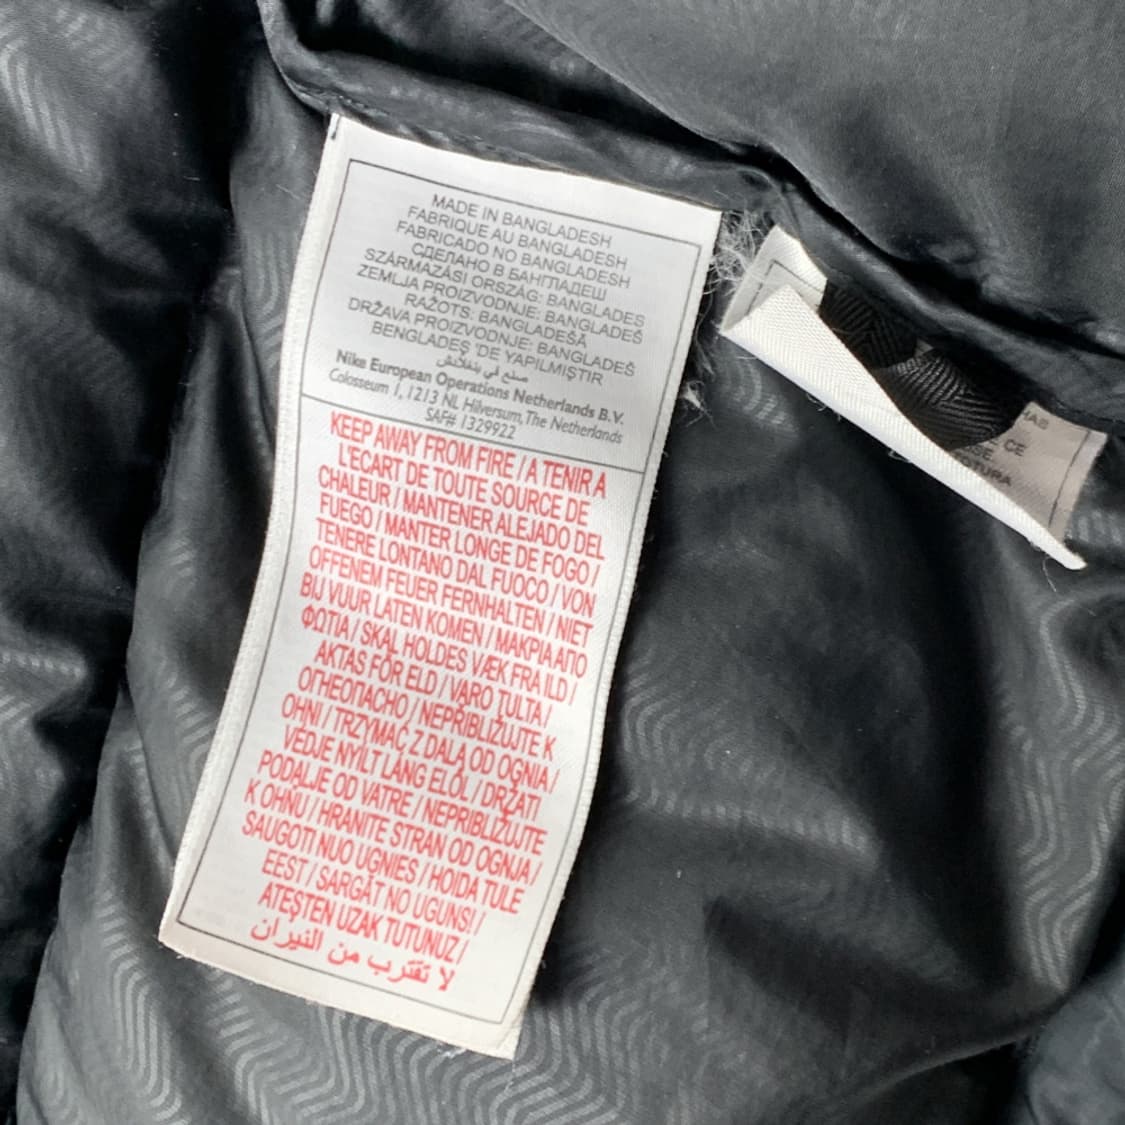 MADE IN BANGLADESH
FABRIQUE AU BANGLADESH
FABRICADO NO BANGLADESH
СДЕЛАНО В БАНГЛАДЕШ
SZÁRMAZÁSI ORSZÁG: BANGLADES
ZEMLJA PROIZVODNJE: BANGLADEŠ
RAŽOTS: BANGLADEŠĀ
DRŽAVA PROIZVODNJE: BANGLADEŠ
BENGLADEŞ 'DE YAPILMIŞTIR
صنع في بنغلاديش
Nike European Operations Netherlands B.V.
Colosseum 1, 1213 NL Hilversum, The Netherlands
SAF# 1329922
KEEP AWAY FROM FIRE / A TENIR A
L'ECART DE TOUTE SOURCE DE
CHALEUR / MANTENER ALEJADO DEL
FUEGO / MANTER LONGE DE FOGO /
TENERE LONTANO DAL FUOCO / VON
OFFENEM FEUER FERNHALTEN / NIET
BIJ VUUR LATEN KOMEN / ΜΑΚΡΙΑ ΑΠΟ
ΦΩΤΙΑ / SKAL HOLDES VÆK FRA ILD /
AKTAS FÖR ELD / VARO TULTA /
ОГНЕОПАСНО / NEPŘIBLIŽUJTE K
OHNI / TRZYMAĆ Z DALA OD OGNIA /
VÉDJE NYÍLT LÁNG ELŐL / DRŽATI
PODALJE OD VATRE / NEPRIBLIŽUJTE
K OHŇU / HRANITE STRAN OD OGNJA /
SAUGOTI NUO UGNIES / HOIDA TULE
EEST / SARGĀT NO UGUNS! /
ATEŞTEN UZAK TUTUNUZ /
لا تقترب من النيران
CE